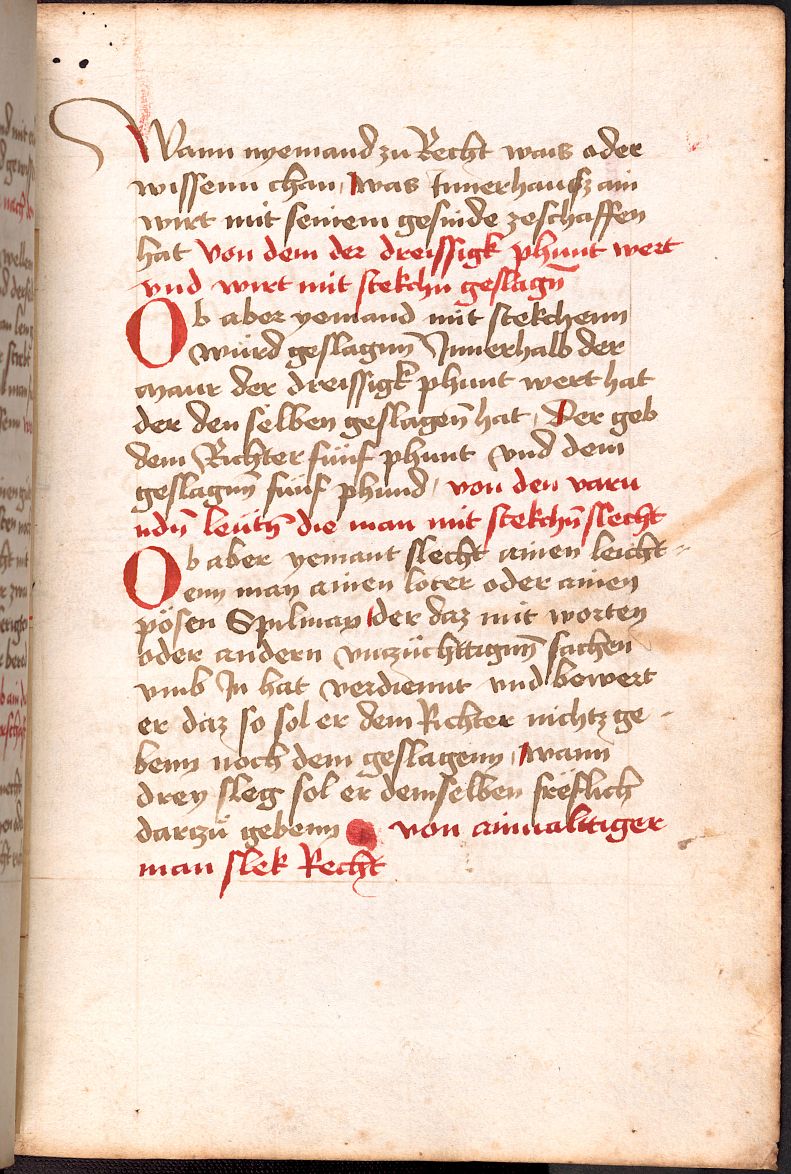 Wann nyemand zu Recht wais oder
wissenn chan, was Innerhausz ain
wirt mit seinem gesinde zeschaffen
hat von dem der dreissigk phunt wert
vnd wirt mit stekchn geslagn̄
Ob aber yemand mit stekchenn
würd geslagnn̄ Innerhalb der
maur der dreissigk phunt wert hat
der den selben geslagen̄ hat, Der geb
dem Richter fünf phunt vnd dem
geslagnn̄ fünf phund, von den varn
ndn̄ leütn̄ die man mit stekchn̄ slecht
Ob aber yemant slecht ainen leicht-
enn man ainen loter oder ainen
pösen Spilman der daz mit worten
oder andern vnzüchttignn̄ sachen
vmb In hat verdiennt vnd bewert
er daz so sol er dem Richter nichtz ge-
benn noch dem geslagenn, wann
drey sleg sol er demselben freflich
darzü gebenn von ainualttiger
man slek Recht